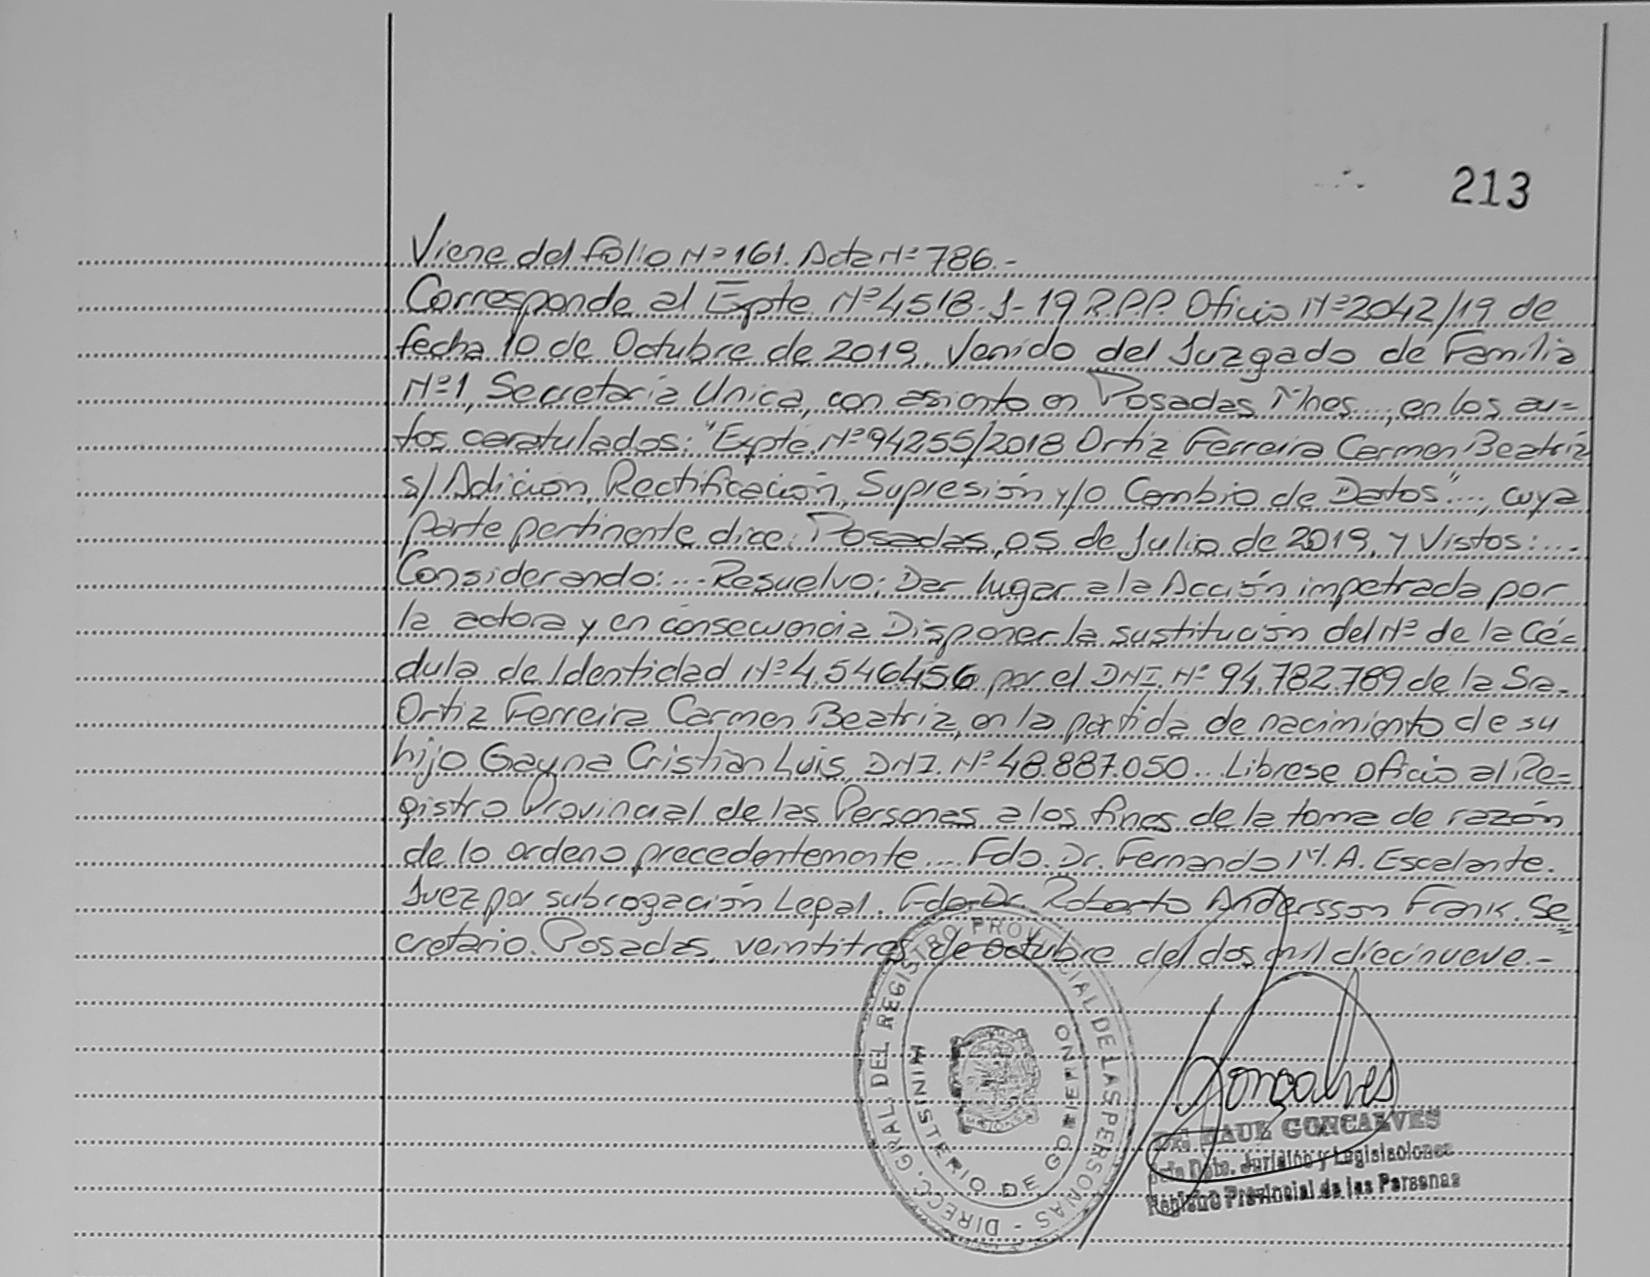 213
Viene del folio Nº 161. Acta Nº 786.-
Corresponde al Expte Nº 4518-J-19 R.P.P. Oficio Nº 2042/19 de
fecha 10 de Octubre de 2019, Venido del Juzgado de Familia
Nº1, Secretaría Unica, con asiento en Posadas Mnes..., en los au=
tos caratulados: "Expte. Nº 94255/2018 Ortiz Ferreira Carmen Beatriz
s/ Adición, Rectificación, Supresión y/o Cambio de Datos"..., cuya
parte pertinente dice: Posadas, 05 de Julio de 2019, y Vistos:...
Considerando:... Resuelvo: Dar lugar a la Acción impetrada por
la actora y en consecuencia Disponer la sustitución del Nº de la Cé=
dula de Identidad Nº 4.546.456 por el DNI. Nº 94.782.789 de la Sra.
Ortiz Ferreira Carmen Beatriz, en la partida de nacimiento de su
hijo Gayna Cristian Luis, DNI. Nº 48.887.050... Librese oficio al Re=
gistro Provincial de las Personas a los fines de la toma de razón
de lo ordeno precedentemente.... Fdo. Dr. Fernando M. A. Escalante.
Juez por subrogación Legal. Fdo Dr. Roberto Andersson Frank. Se
cretario. Posadas, veintitres de octubre del dos mil diecinueve.-
DIRECC. GRAL. DEL REGISTRO PROVINCIAL DE LAS PERSONAS -
MINISTERIO DE GOBIERNO
Goncalves
RAUL GONCALVES
Dpto. Jurídico y Legislaciones
Registro Provincial de las Personas